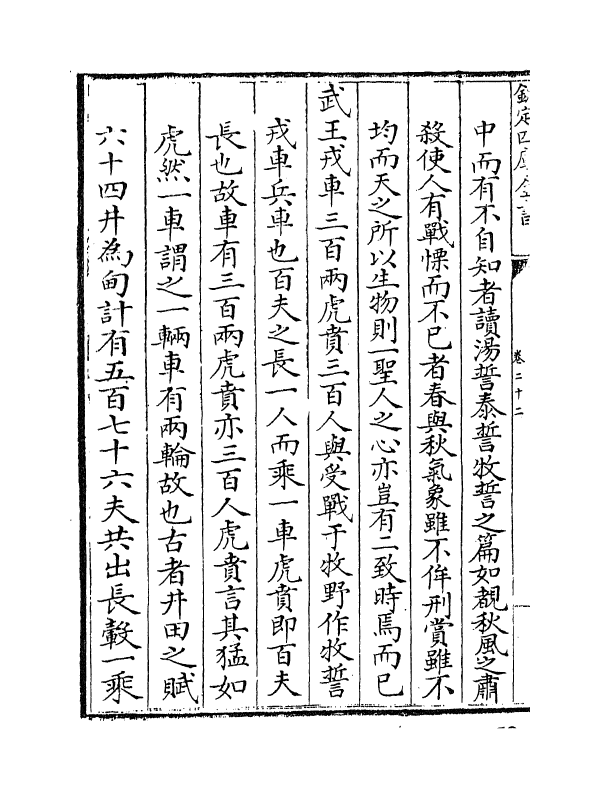 欽定四庫全書
卷二十二
中而有不自知者讀湯誓泰誓牧誓之篇如覩秋風之肅
殺使人有戰慄而不已者春與秋氣象雖不侔刑賞雖不
均而天之所以生物則一聖人之心亦豈有二致時焉而已
武王戎車三百兩虎賁三百人與受戰于牧野作牧誓
戎車兵車也百夫之長一人而乘一車虎賁即百夫
長也故車有三百兩虎賁亦三百人虎賁言其猛如
虎然一車謂之一輛車有兩輪故也古者井田之賦
六十四井為甸計有五百七十六夫共出長轂一乘